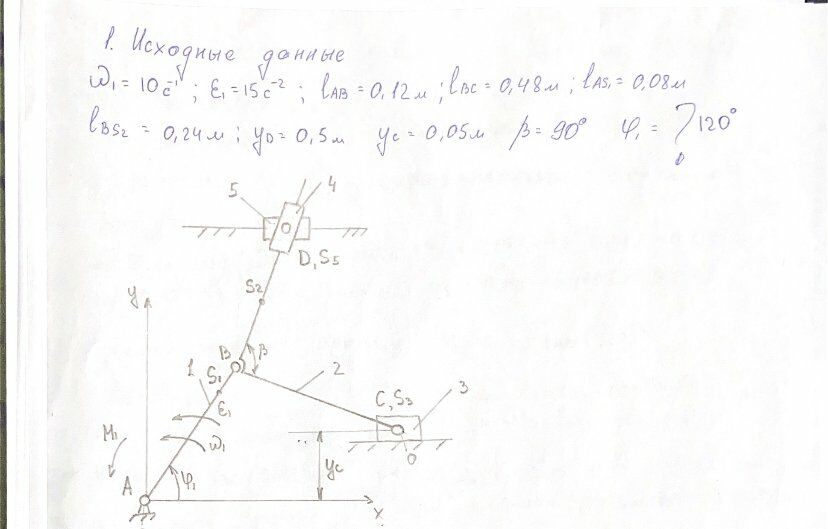 1. Исходные данные
ω₁ = 10 с⁻¹ ; ε₁ = 15 с⁻² ; lAB = 0,12 м ; lBC = 0,48 м ; lAS₁ = 0,08 м
lBS₂ = 0,24 м ; yD = 0,5 м yC = 0,05 м β = 90° φ₁ = 120°
5 4
D, S₅
S₂
y
B β
1 S₁ 2
C, S₃ 3
ε₁
M₁ ω₁
0
yC
A φ₁
x